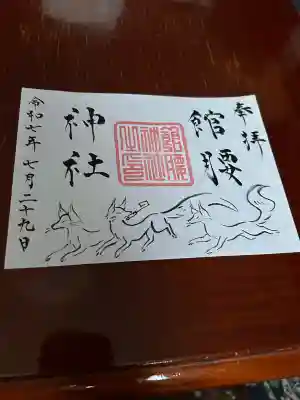 奉拝
館腰
神社
令和七年 七月二十九日
館腰神社之印